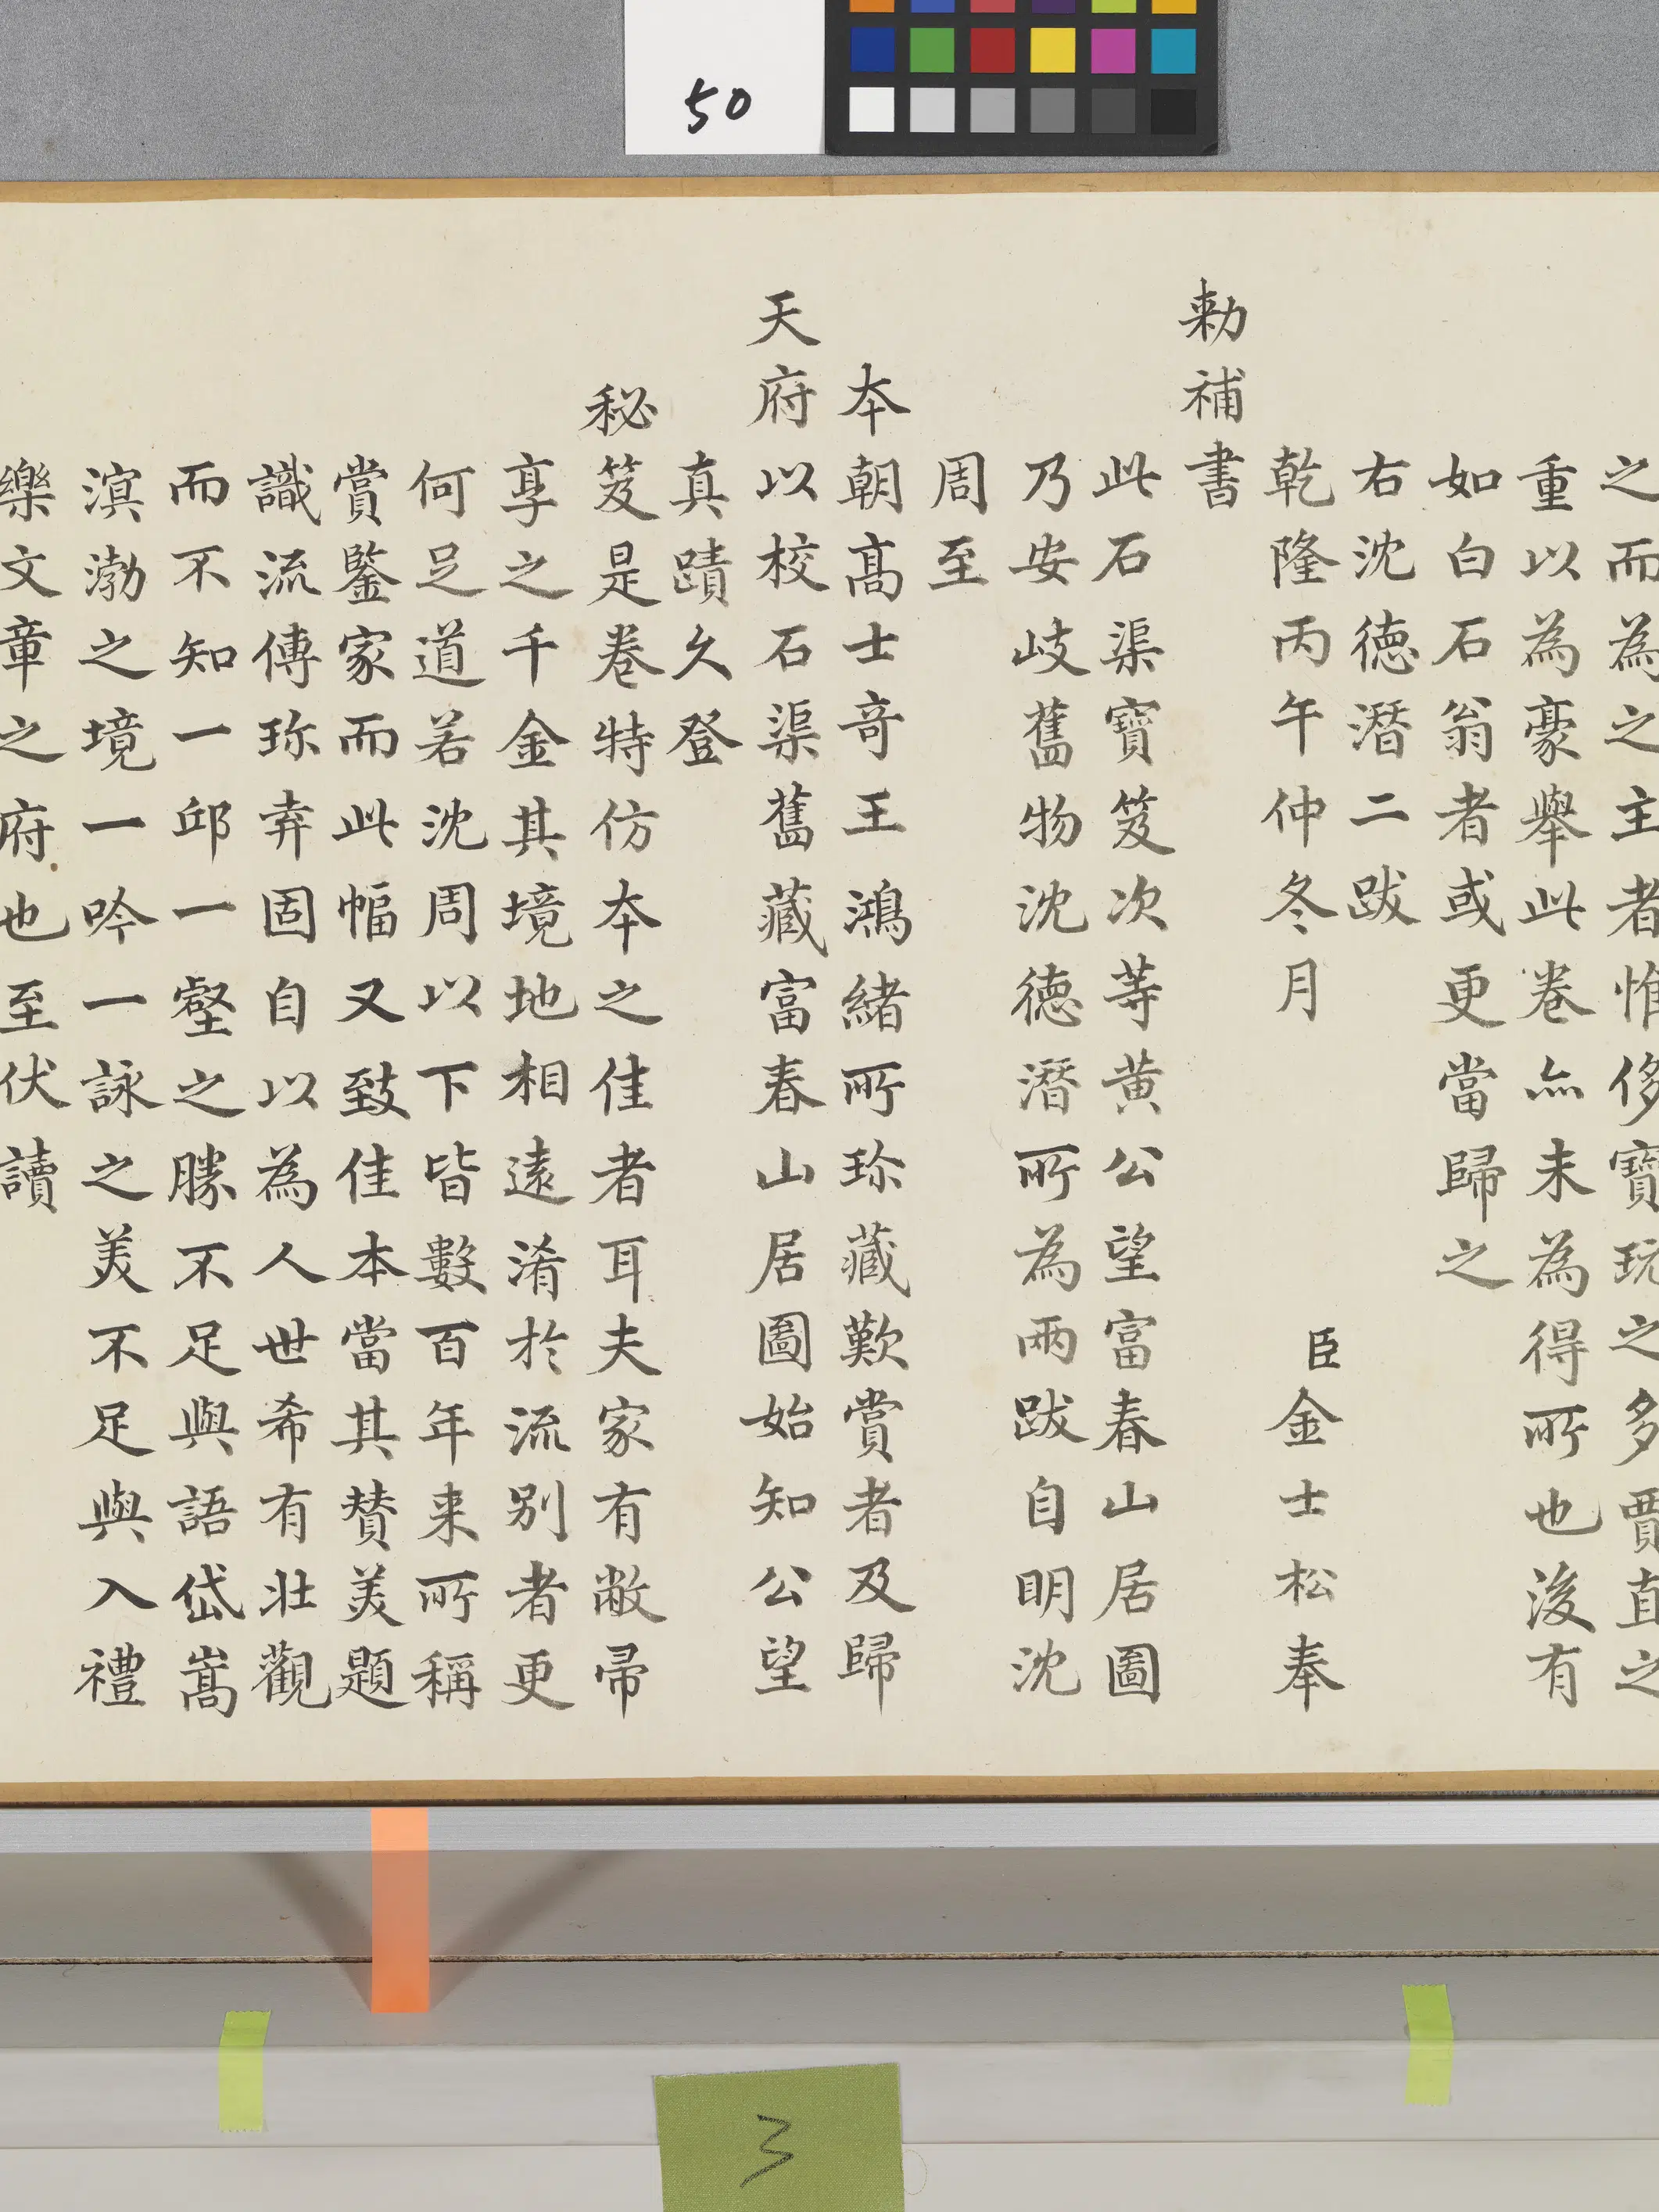 50
之而為之主者惟侈寶玩之多賈直之
重以為豪舉此卷亦未為得所也後有
如白石翁者或更當歸之
右沈德潛二跋
乾隆丙午仲冬月 臣金士松奉
勅補書
此石渠寶笈次等黃公望富春山居圖
乃安岐舊物沈德潛所為兩跋自明沈
周至
本朝高士奇王鴻緒所珍藏歎賞者及歸
天府以校石渠舊藏富春山居圖始知公望
真蹟久登
秘笈是卷特仿本之佳者耳夫家有敝帚
享之千金其境地相遠淆於流別者更
何足道若沈周以下皆數百年来所稱
賞鑒家而此幅又致佳本當其賛美題
識流傳珎弆固自以為人世希有壯觀
而不知一邱一壑之勝不足與語岱嵩
溟渤之境一吟一詠之美不足與入禮
樂文章之府也至伏讀
3